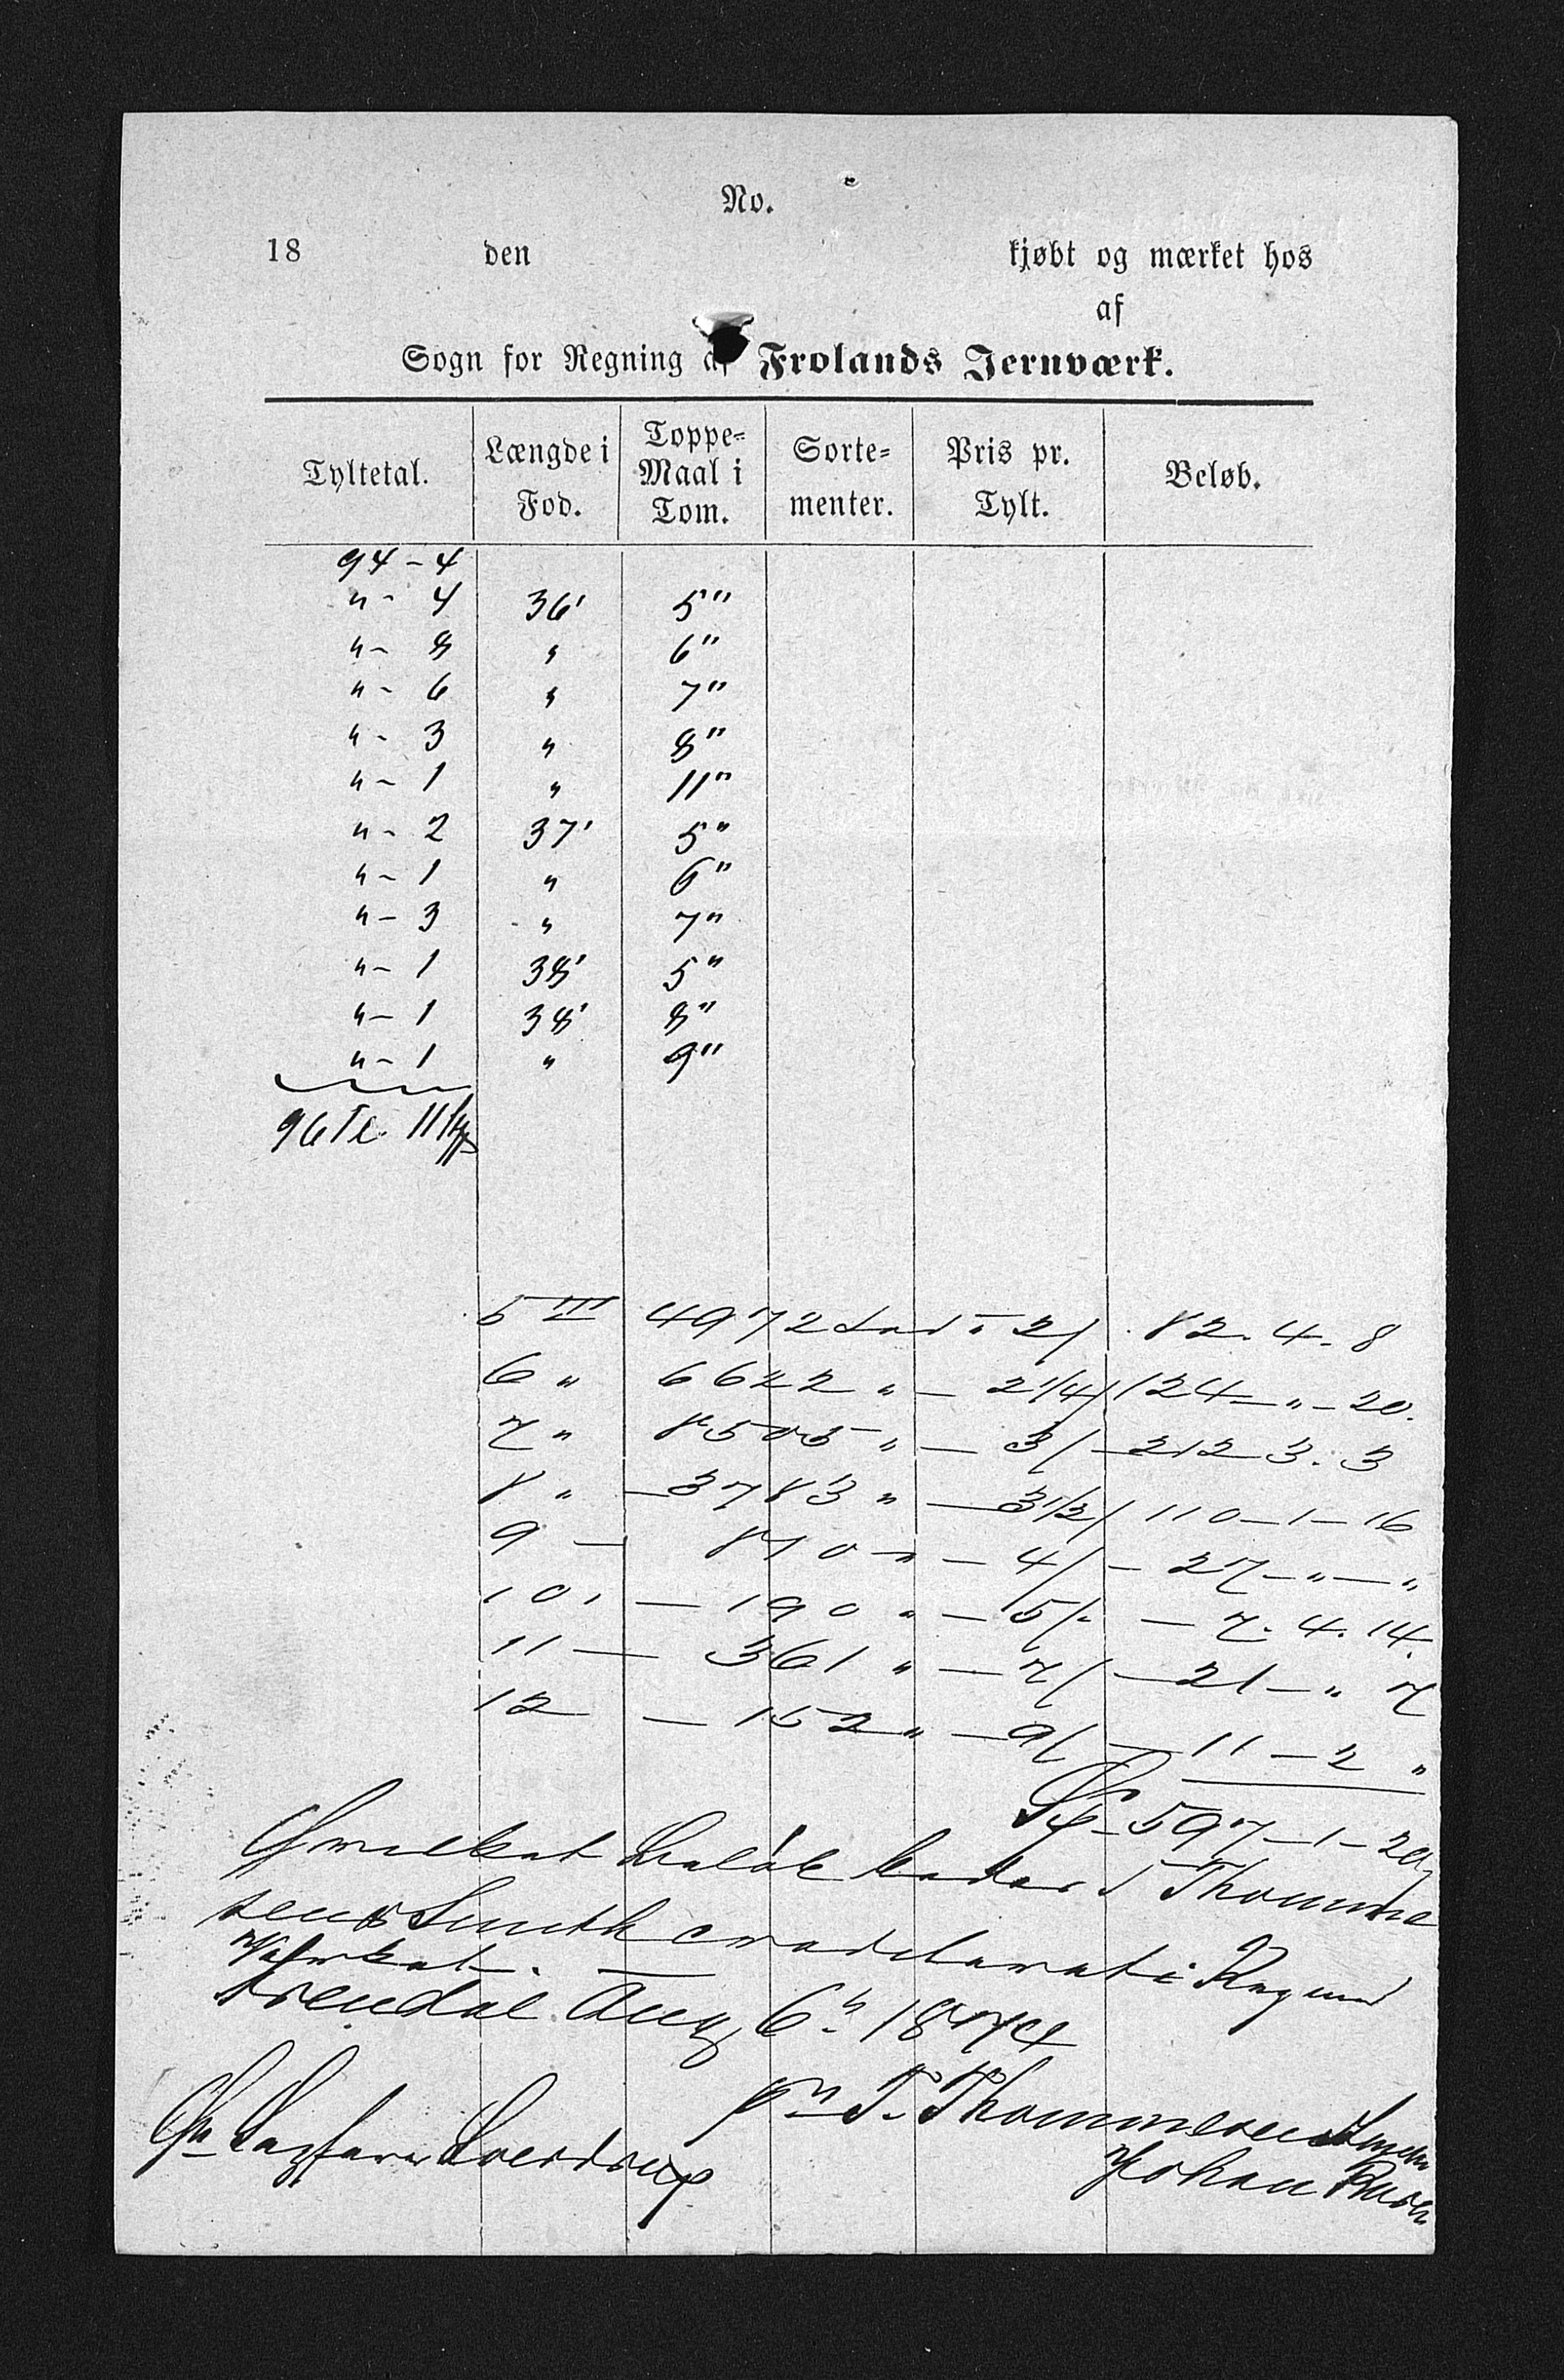 No.
18 den kjøbt og mærket hos
af
Sogn for Regning af Frolands Jernværk.
Tyltetal. Længde i Fod. Toppe-Maal i Tom. Sorte-menter. Pris pr. Tylt. Beløb.
94 - 4
" - 4 36' 5"
" - 8 " 6"
" - 6 " 7"
" - 3 " 8"
" - 1 " 11"
" - 2 37' 5"
" - 1 " 6"
" - 3 " 7"
" - 1 38' 5"
" - 1 38' 8"
" - 1 " 9"
96 Tl. 11
5 4972 2/ 82. 4. 8
6 " 6622 " - 2 1/4/ 124 - " - 20.
7 " 8505 " - 3/ - 212 3. 3
8 " - 3783 " - 3 1/2/ 110 - 1 - 16
9 - 810 " - 4/ - 27 - " - "
10 " - 190 " - 5/- - 7. 4. 14.
11 - 361 " - 7/ - 21 - " 7
12 - 152 " - 9/ - 11 - 2 "
Sp - 597 - 1 - 20
Beløb T Thomme
sen & Smith i
Værket.
Arendal Aug 6 1874
pr T. Thommesen & Smith
Sverdrup Johan